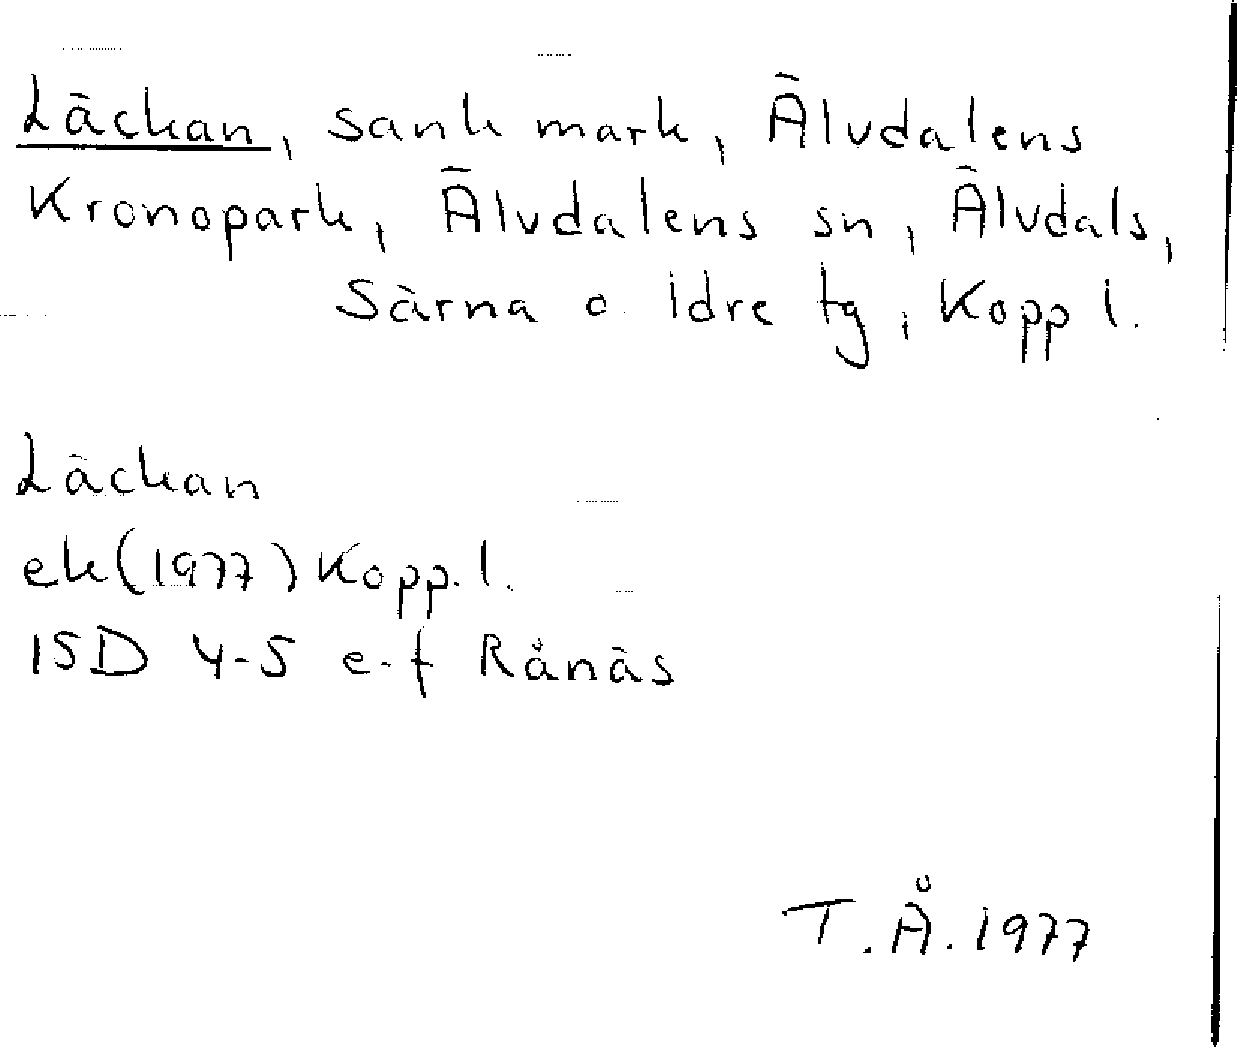 Läckan, sank mark, Älvdalens
Kronopark, Älvdalens sn, Älvdals,
Särna o Idre tg, Kopp l.
Läckan
ek (1977) Kopp. l.
15D 4-5 e-f Rånäs
T.Å. 1977